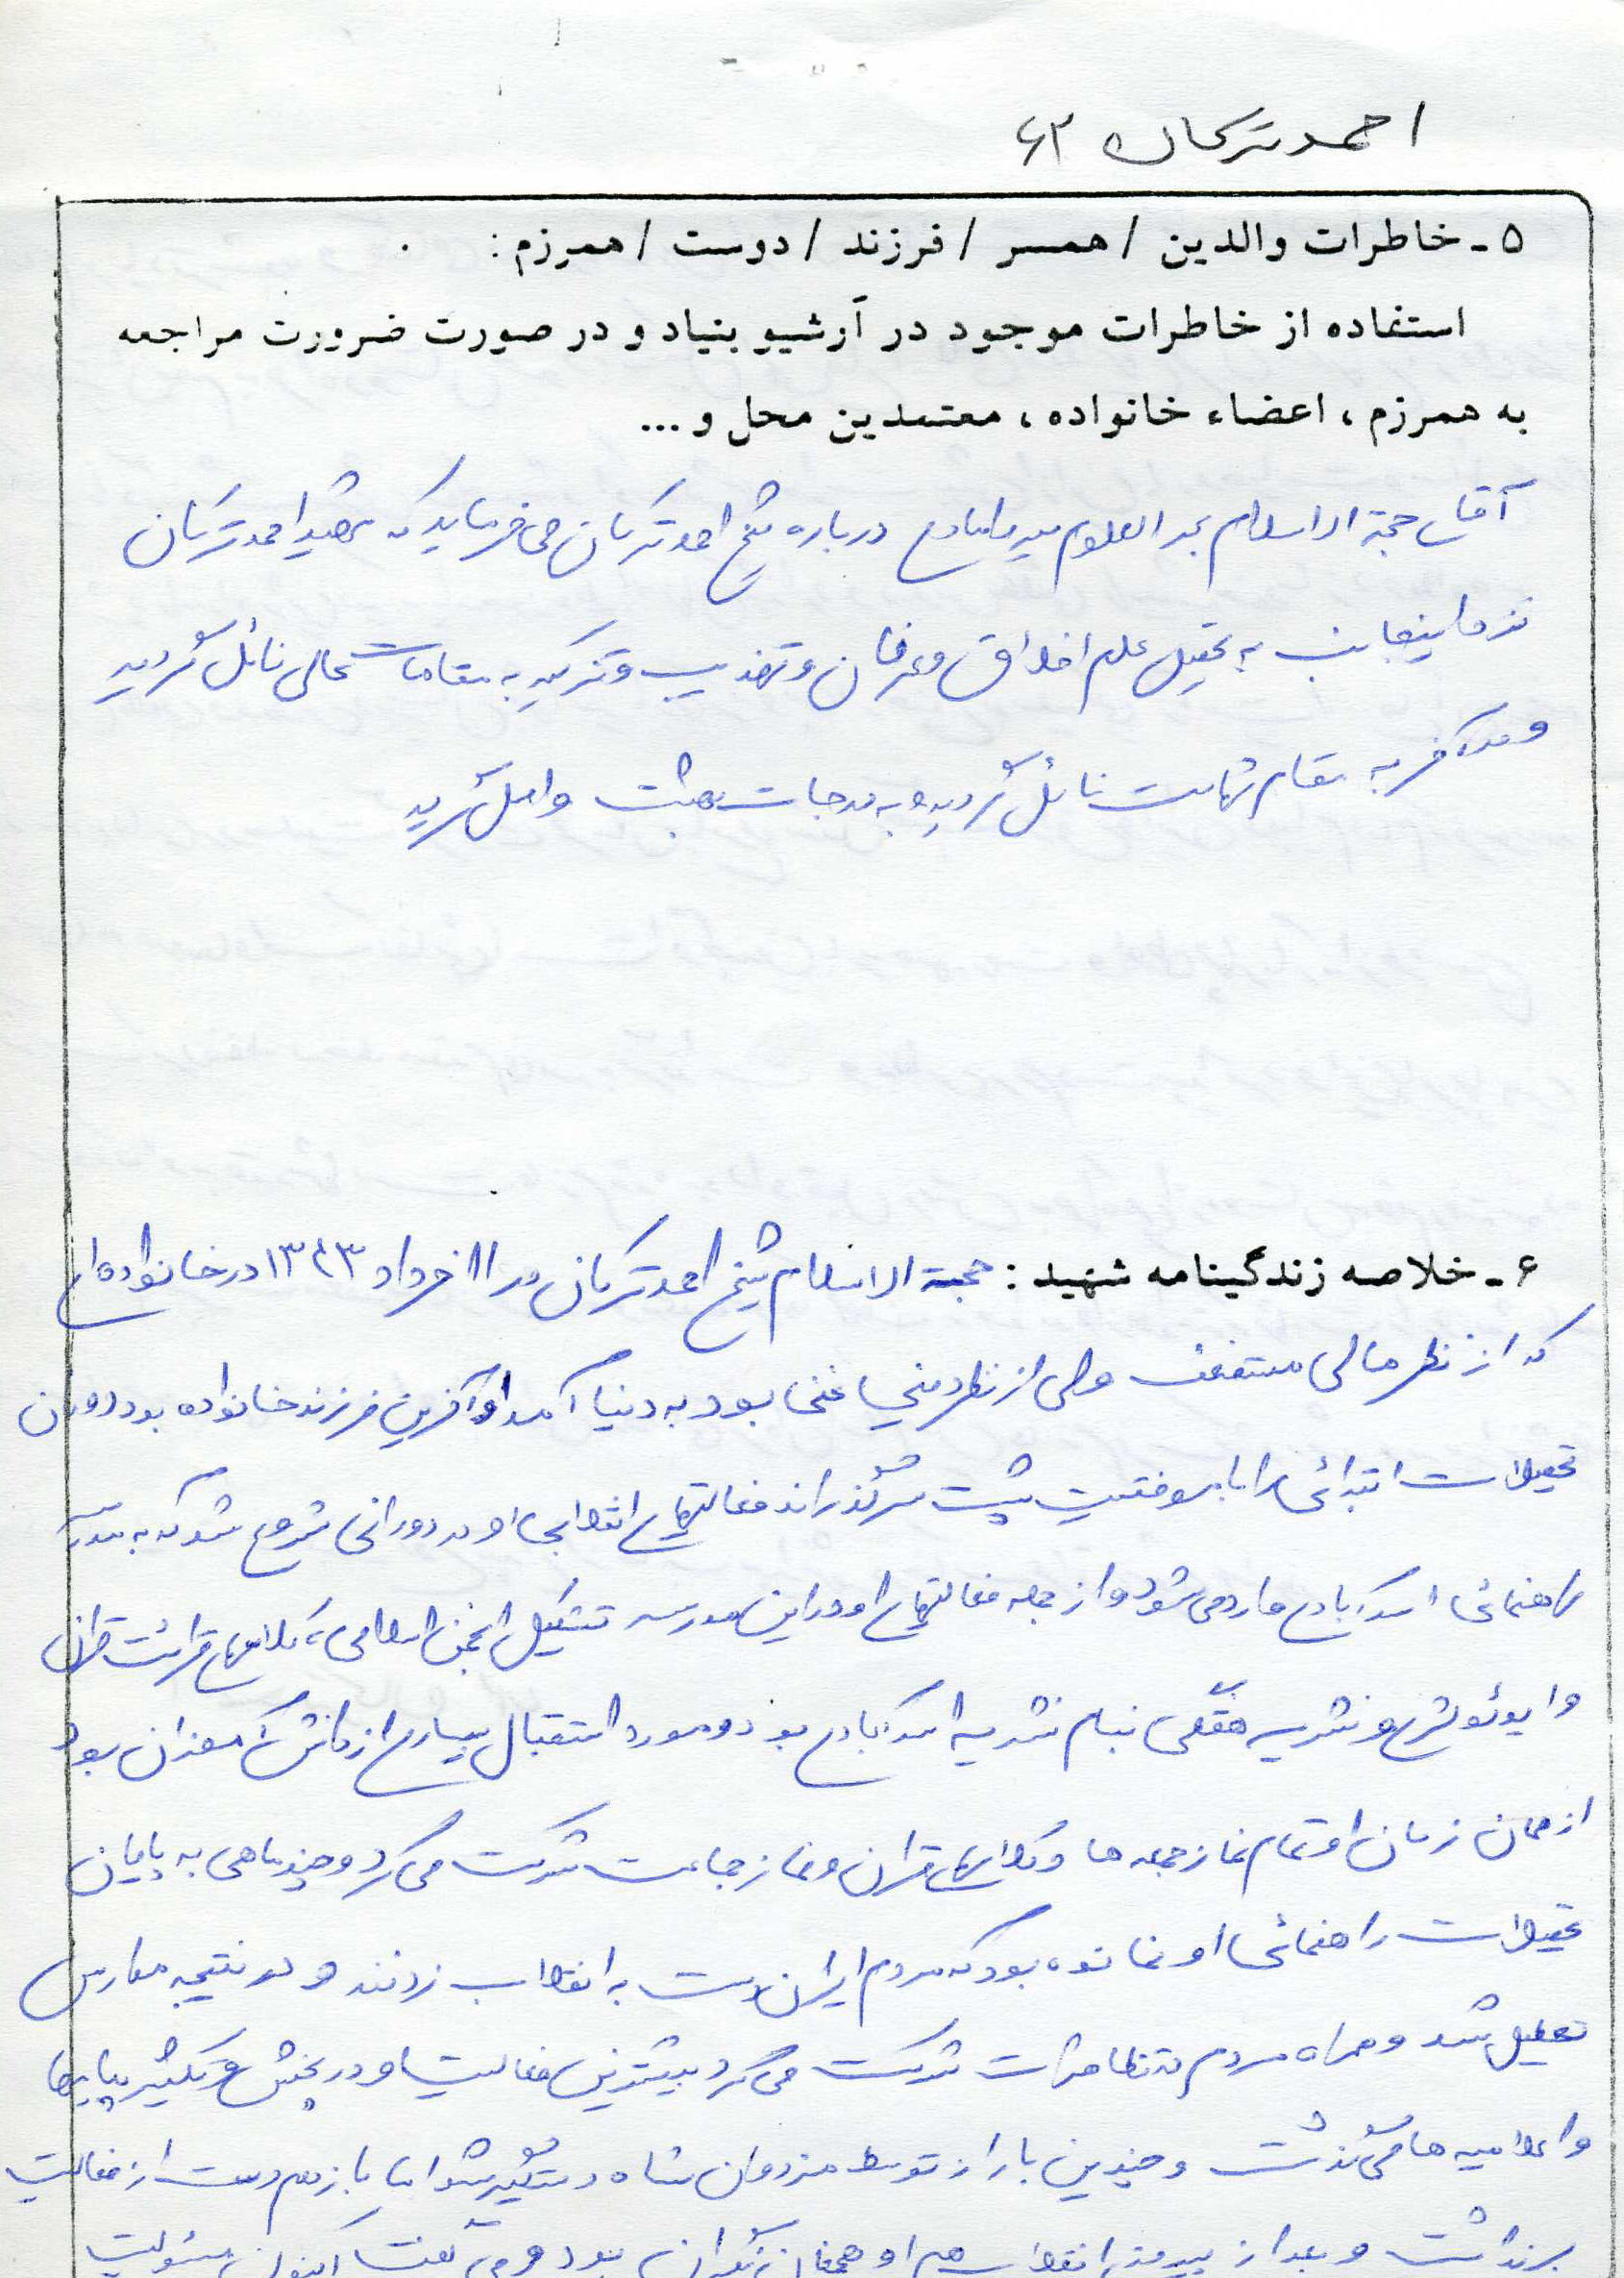 احمد ترکان ۶۲
۵ - خاطرات والدین / همسر / فرزند / دوست / همرزم :
استفاده از خاطرات موجود در آرشیو بنیاد و در صورت ضرورت مراجعه
به همرزم ، اعضاء خانواده ، معتمدین محل و ...
آقای حجة الاسلام بحر العلوم درباره شیخ احمد ترکان می فرماید که شهید احمد ترکان
نزد اینجانب به تحصیل علم اخلاق و عرفان و تهذیب و تزکیه به مقامات عالی نائل گردید
و در آخر به مقام شهادت نائل گردید و به درجات بهشت واصل گردید
۶ - خلاصه زندگینامه شهید : حجة الاسلام شیخ احمد ترکان در ۱۱ خرداد ۱۳۴۳ در خانواده ای
که از نظر مالی مستضعف ولی از نظر دینی غنی بود به دنیا آمد او آخرین فرزند خانواده بود دوران
تحصیلات ابتدائی را با موفقیت پشت سر گذراند فعالیتهای انقلابی او در دورانی شروع شد که به مدرسه
راهنمائی اسدآبادی وارد می شود و از جمله فعالیتهای او در این مدرسه تشکیل انجمن اسلامی ، کلاسهای قرائت قرآن
و ایدئولوژی و نشریه هفتگی بنام نشریه اسدآبادی بود و مورد استقبال بسیاری از دانش آموزان بود
از همان زمان او تمام نماز جمعه ها و کلاسهای قرآن و نماز جماعت شرکت می کرد و چند ماهی به پایان
تحصیلات راهنمائی او نمانده بود که مردم ایران دست به انقلاب زدند و در نتیجه مدارس
تعطیل شد و همراه مردم در تظاهرات شرکت می کرد بیشترین فعالیت او در پخش و تکثیر پیامها
و اعلامیه ها می گذشت و چندین بار از توسط مزدوران شاه دستگیر شد اما باز هم دست از فعالیت
برنداشت و بعد از پیروزی انقلاب هم او همچنان نگران بود و می گفت اکنون مسئولیت